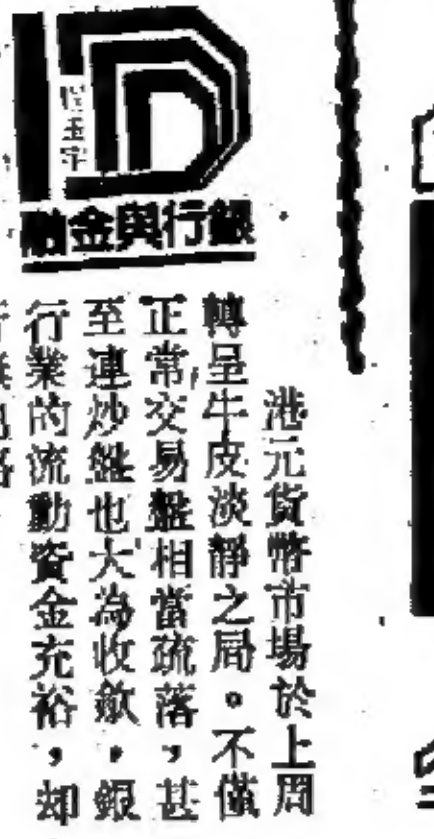 銀行與金融
港元貨幣市場於上周
轉呈牛皮淡靜之局。不僅
正常交易盤相當疏落,甚
至連炒盤也大為收歛,銀
行業的流動資金充裕,却